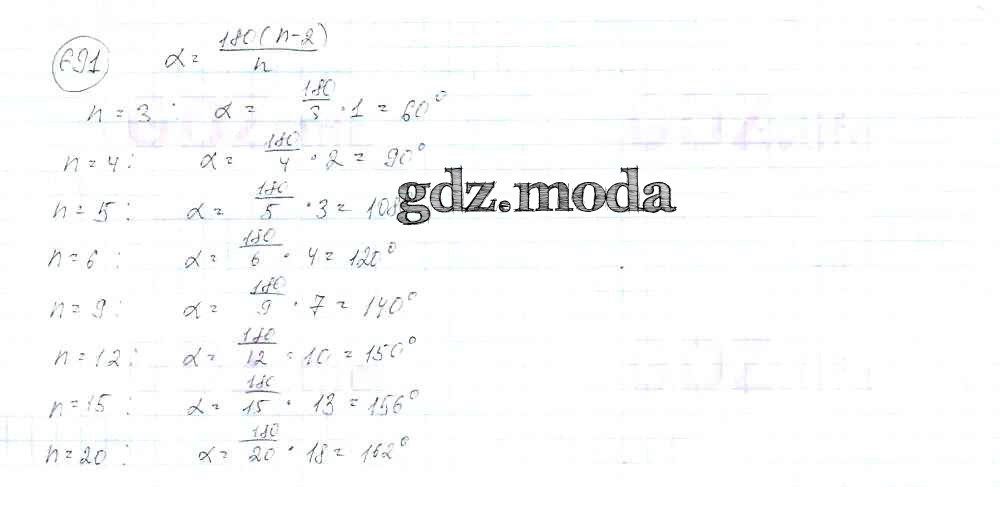 691 α = 180(n-2)/n
n = 3 : α = 180/3 · 1 = 60°
n = 4 : α = 180/4 · 2 = 90°
n = 5 : α = 180/5 · 3 = 108
gdz.moda
n = 6 : α = 180/6 · 4 = 120°
n = 9 : α = 180/9 · 7 = 140°
n = 12 : α = 180/12 = 10 = 150°
n = 15 : α = 180/15 · 13 = 156°
n = 20 : α = 180/20 · 18 = 162°